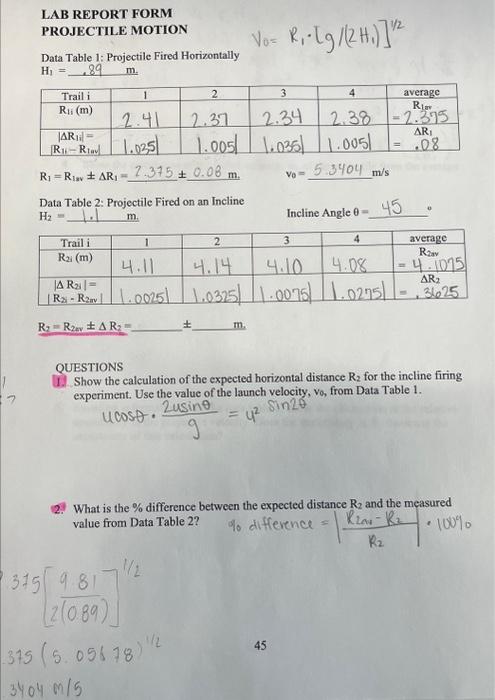 LAB REPORT FORM
PROJECTILE MOTION
V₀= R₁·[g/(2H₁)]^1/2
Data Table 1: Projectile Fired Horizontally
H₁ = .89 m.
Trail i 1 2 3 4 average
R₁ᵢ (m) 2.41 2.37 2.34 2.38 R₁av = 2.375
|ΔR₁ᵢ| = |R₁ᵢ – R₁av| |.035| |.005| |.035| |.005| ΔR₁ = .08
R₁ = R₁av ± ΔR₁ = 2.375 ± 0.08 m. v₀ = 5.3404 m/s
Data Table 2: Projectile Fired on an Incline
H₂ = 1.1 m. Incline Angle θ = 45 °
Trail i 1 2 3 4 average
R₂ᵢ (m) 4.11 4.14 4.10 4.08 R₂av = 4.1075
|Δ R₂ᵢ| = | R₂ᵢ - R₂av | |.0025| |.0325| |.0075| |.0275| ΔR₂ = .3625
R₂ = R₂av ± Δ R₂ = ± m.
QUESTIONS
1. Show the calculation of the expected horizontal distance R₂ for the incline firing
experiment. Use the value of the launch velocity, v₀, from Data Table 1.
ucosθ · 2usinθ/g = u² sin2θ
2. What is the % difference between the expected distance R₂ and the measured
value from Data Table 2? % difference = |R2av - R₂ / R₂| · 100%
.375[9.81/2(0.89)]^1/2
.375 (5.05678)^1/2
3404 m/s
45